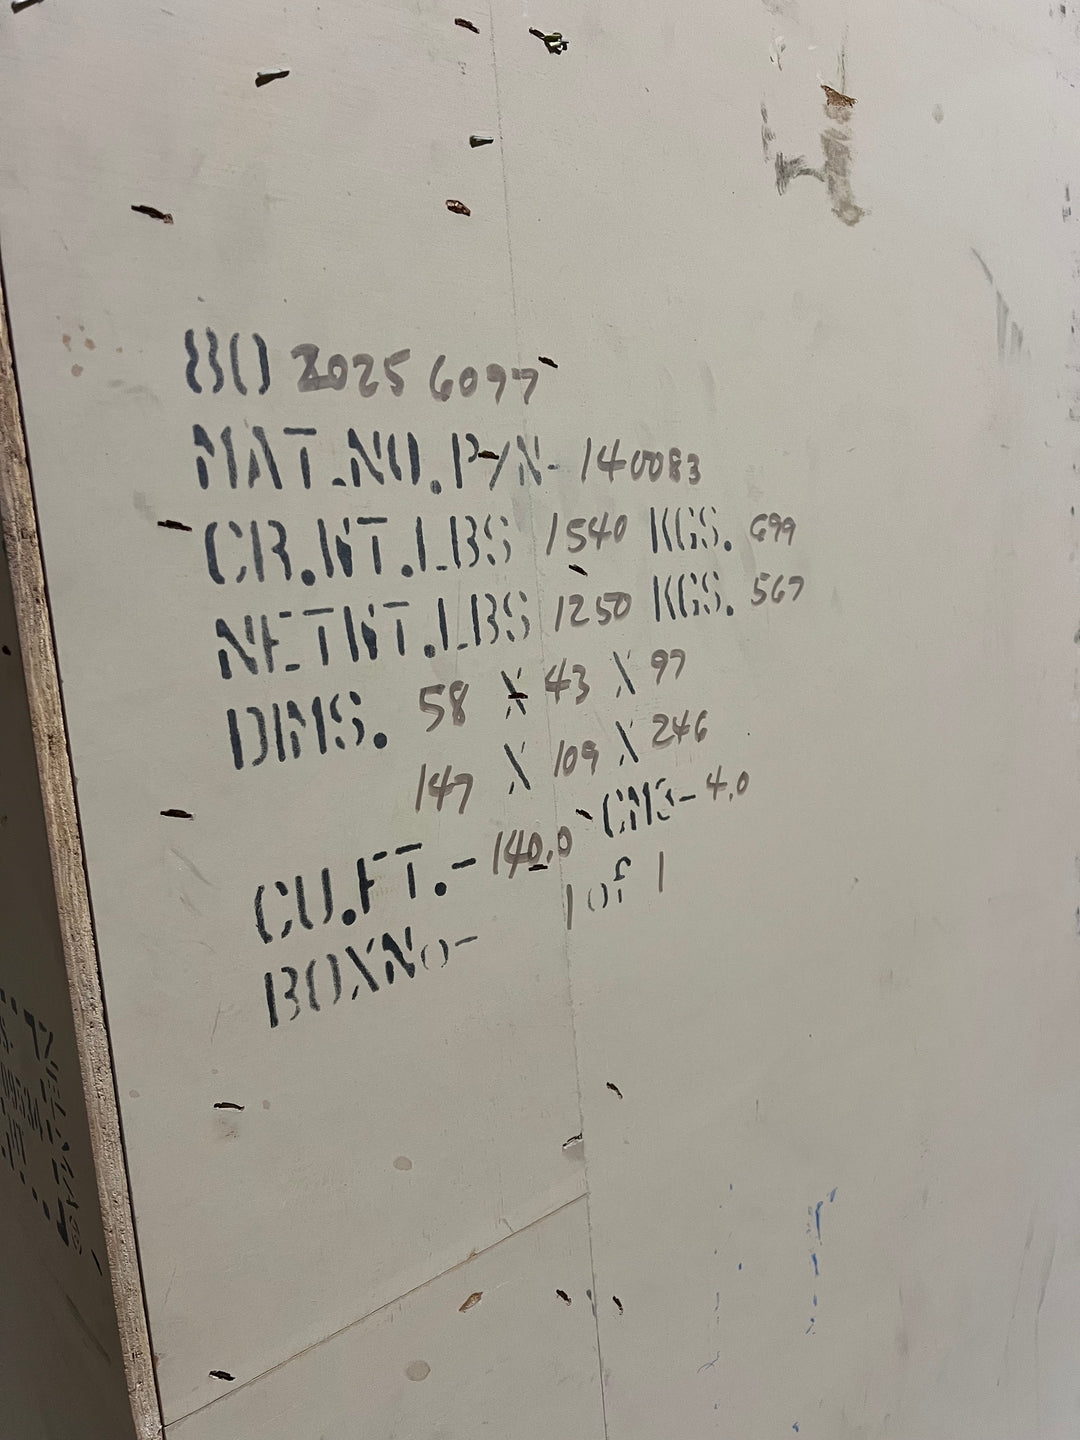 80 2025 6097
MAT.NO.P/N- 140083
GR.WT.LBS 1540 KGS. 699
NETWT.LBS 1250 KGS. 567
DMS. 58 X 43 X 97
147 X 109 X 246
CU.FT.- 140.0 CM3- 4.0
BOXNo- 1 of 1